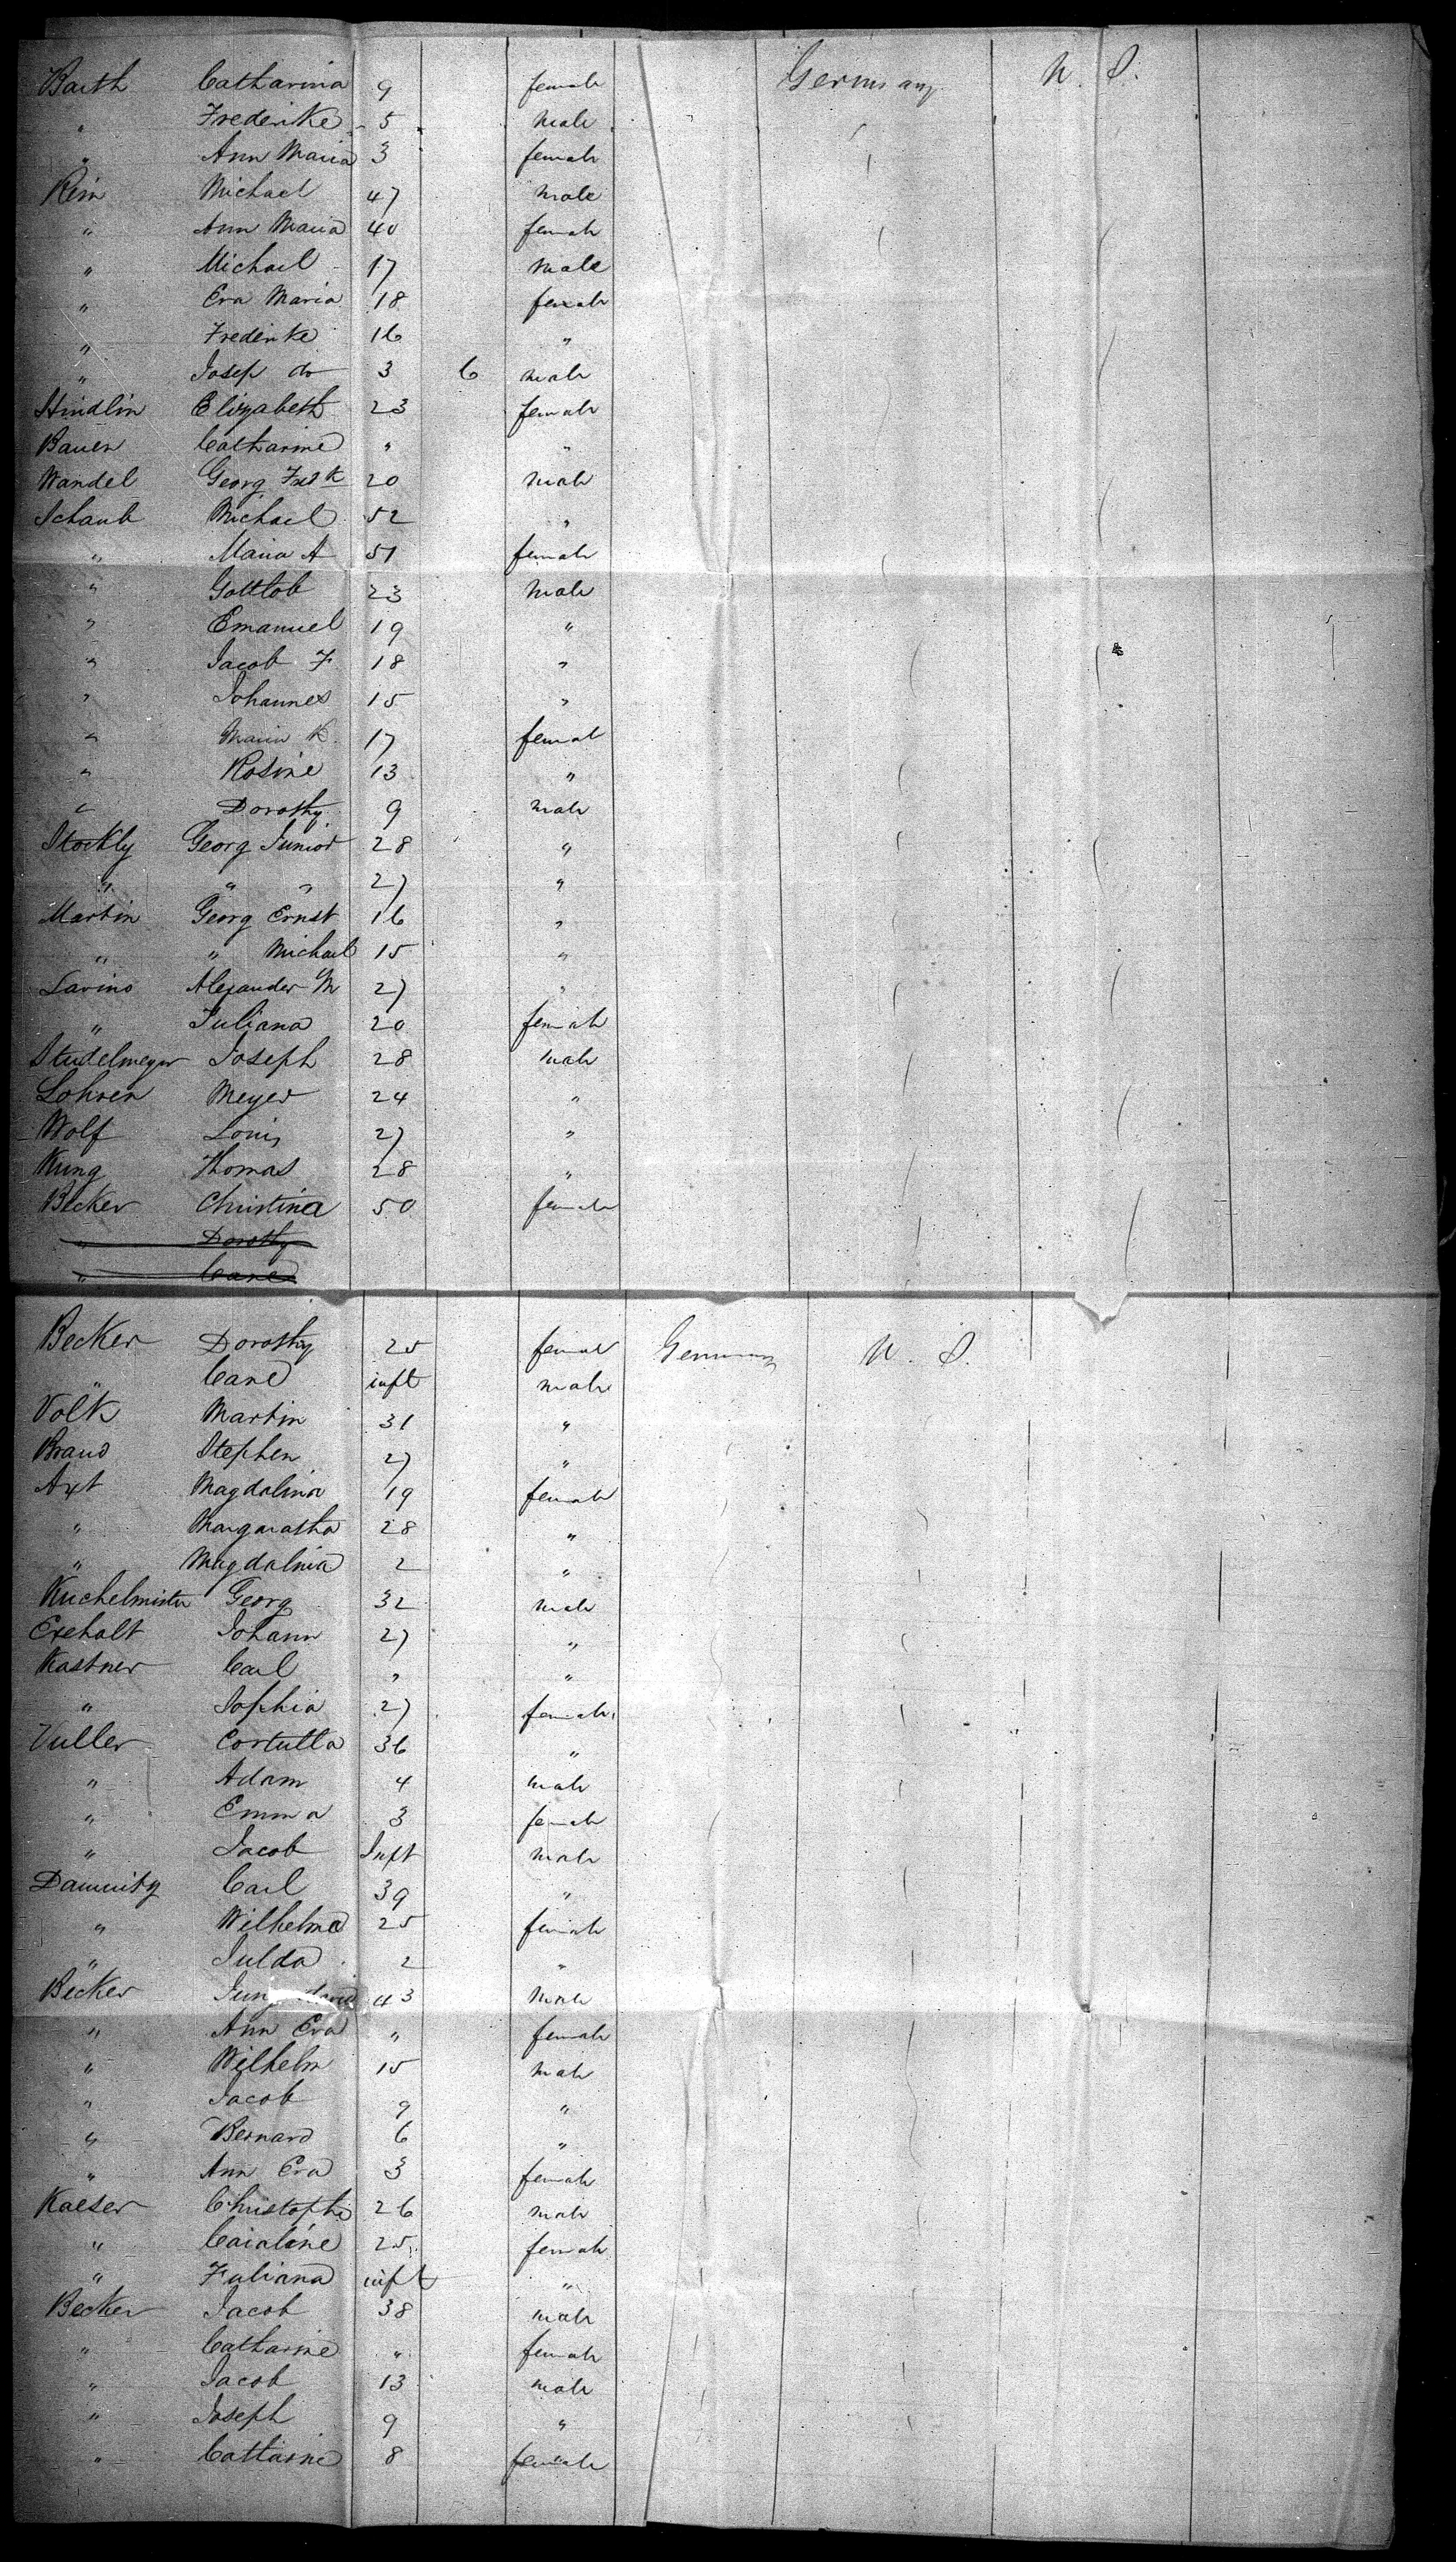 Barth Catharina 9 female Germany U. S.
" Frederike 5 male
" Ann Maria 3 female
Rein Michael 47 male
" Ann Maria 40 female
" Michael 17 male
" Eva Maria 18 female
" Frederike 16 "
" Josep do 3 6 male
Hindlin Elizabeth 23 female
Bauer Catharine " "
Wandel Georg Fredk 20 male
Schaub Michael 52 "
" Maria A 51 female
" Gottlob 23 male
" Emanuel 19 "
" Jacob F 18 "
" Johannes 15 "
" Maria 17 female
" Rosine 13 "
" Dorothy 9 male
Stockly Georg Junior 28 "
" " " 27 "
Martin Georg Ernst 16 "
" " Michael 15 "
Lavino Alexander M 27 "
" Juliana 20 female
Studelmeyer Joseph 28 male
Lohrer Meyer 24 "
Wolf Louis 27 "
Kung Thomas 28 "
Becker Christina 50 female
" Dorothy
" Carl
Becker Dorothy 25 female Germany U. S.
" Carl inft male
Volk Martin 31 "
Braud Stephen 27 "
Axt Magdalina 19 female
" Margaratha 28 "
" Magdalnia 2 "
Kuchelmister Georg 32 male
Erehalt Johann 27 "
Kastner Carl " "
" Sophia 27 female
Vuller Cortulla 36 "
" Adam 4 male
" Emma 3 female
" Jacob Inft male
Damnitz Carl 39 "
" Wilhelma 25 female
" Julda 2 "
Becker 43 male
" Ann Eva " female
" Wilhelm 15 male
" Jacob 9 "
" Bernard 6 "
" Ann Eva 3 female
Kaeser Christophe 26 male
" Caialine 25 female
" Juliana inft "
Becker Jacob 38 male
" Catharine " female
" Jacob 13 male
" Joseph 9 "
" Catharine 8 female